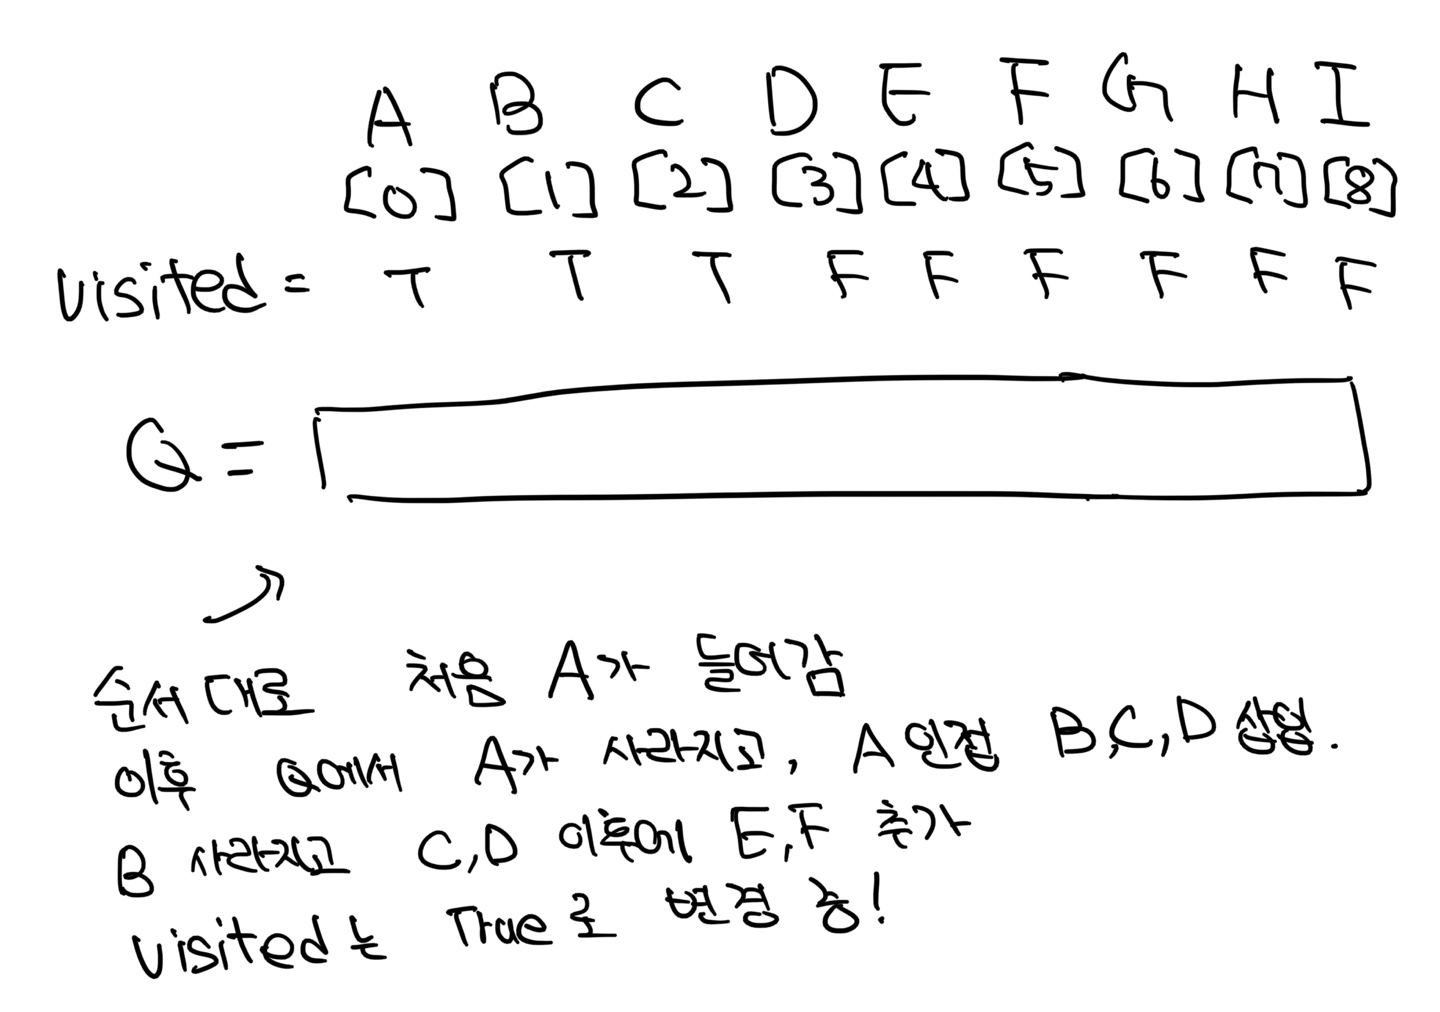 A B C D E F G H I
[0] [1] [2] [3] [4] [5] [6] [7] [8]
visited = T T T F F F F F F
Q =
순서 대로 처음 A가 들어감
이후 Q에서 A가 사라지고, A 인접 B,C,D 삽입.
B 사라지고 C,D 이후에 E,F 추가
visited는 True로 변경 중!